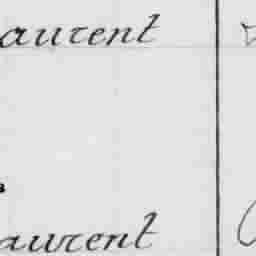 aurent
aurent